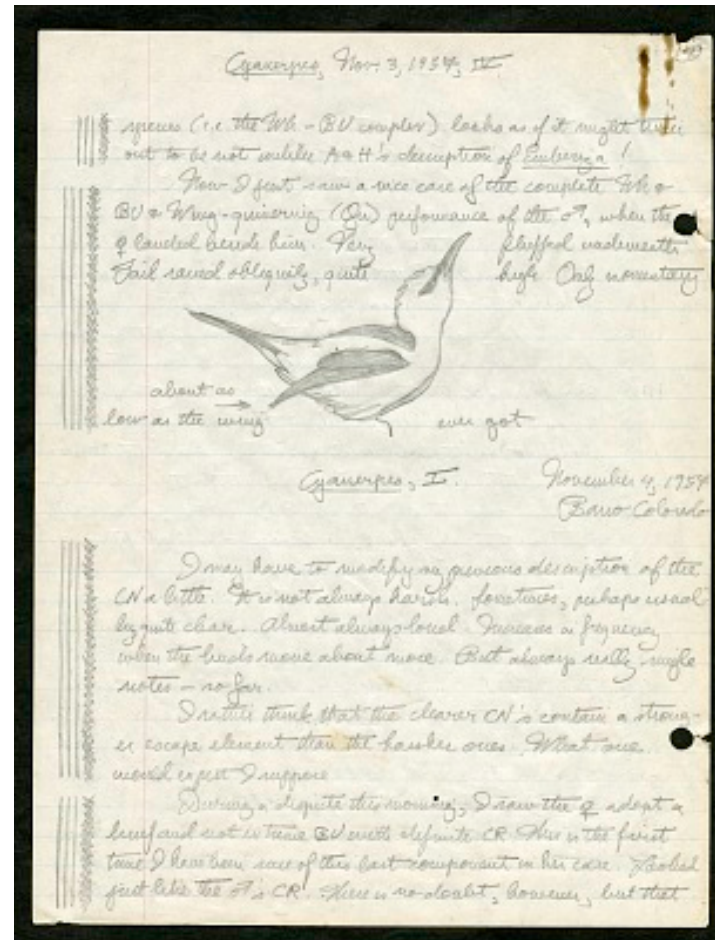 Cyanerpes, Nov. 3, 1957, IV.
species (i.e. the Wh - BV complex) looks as if it might turn
out to be not unlike A & H's description of Emberiza !
Now I just saw a nice case of the complete Wh &
BV & Wing-quivering (Qu) performance of the ♂, when the
♀ landed beside him. Very fluffed underneath
Tail raised obliquely, quite high Only momentary
about as
low as the wing ever got
Cyanerpes, I. November 4, 1957
Barro Colorado
I may have to modify my previous description of the
CN a little. It is not always harsh. Sometimes, perhaps usual
ly quite clear. Almost always loud. Increases in frequency
when the birds move about more. But always really single
notes - so far.
I rather think that the clearer CN's contain a strong-
er escape element than the harsher ones. What one
would expect I suppose
During a dispute this morning, I saw the ♀ adopt a
brief and not extreme BV with definite CR. This is the first
time I have been sure of this last component in her case. Looked
just like the ♂'s CR. There is no doubt, however, but that